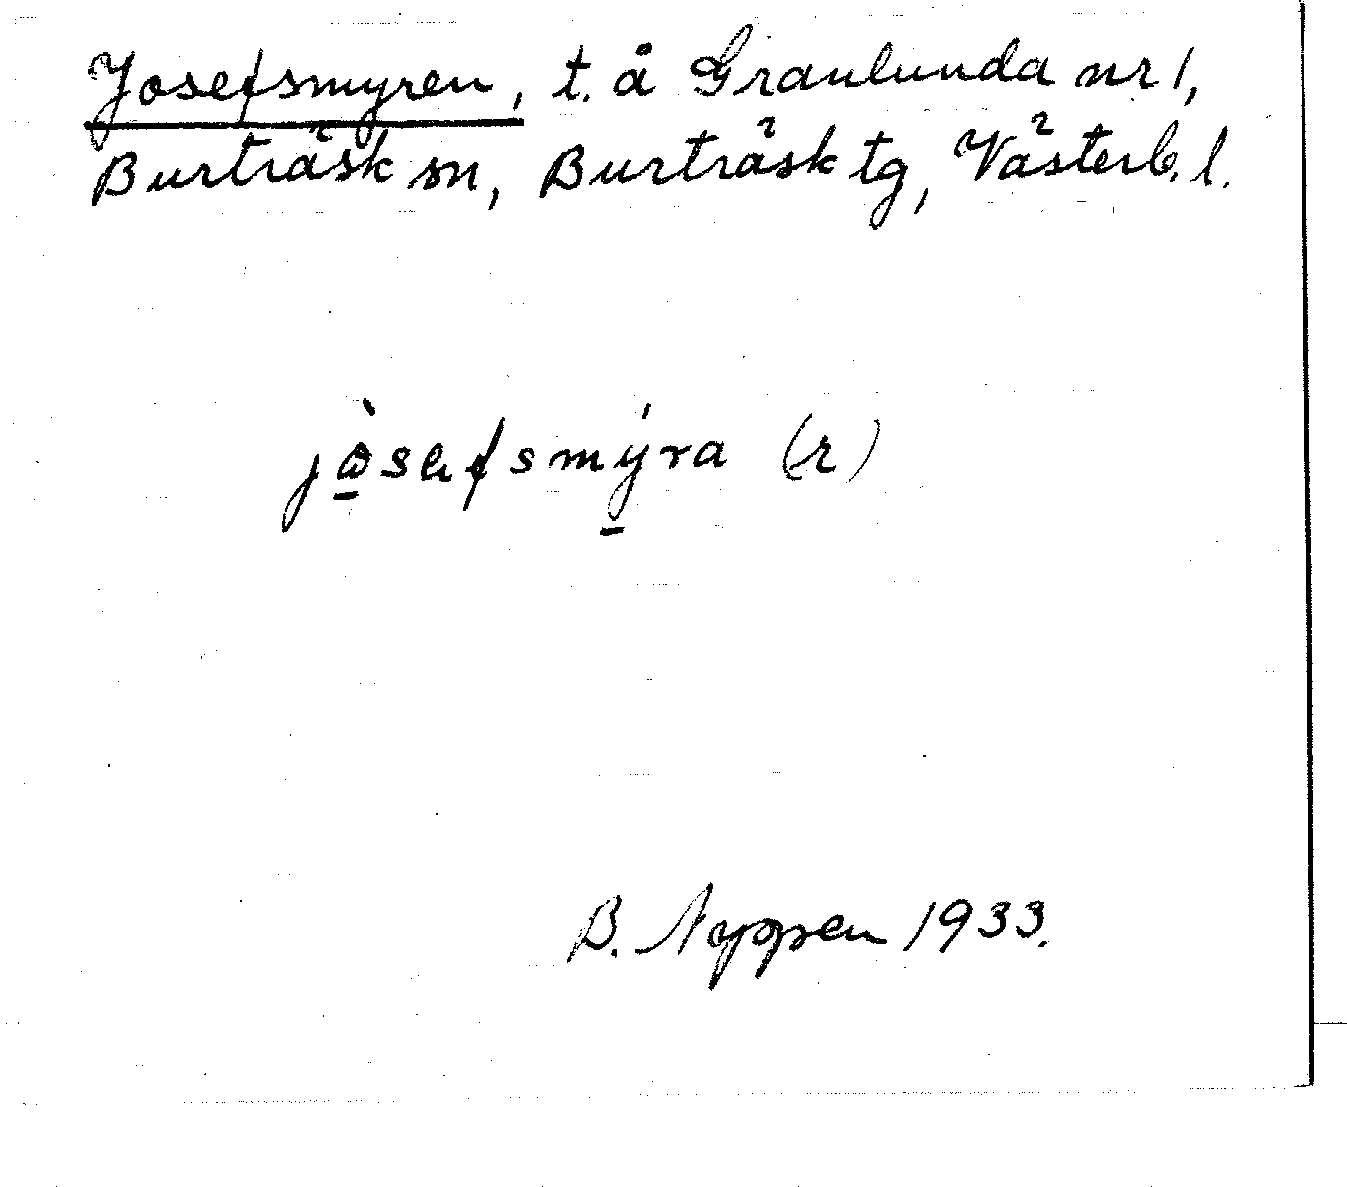 Josefsmyren, t. å Granlunda nr 1,
Burträsk sn, Burträsk tg, Västerb. l.
jòsefsmýra (r)
B. Nyppen 1933.